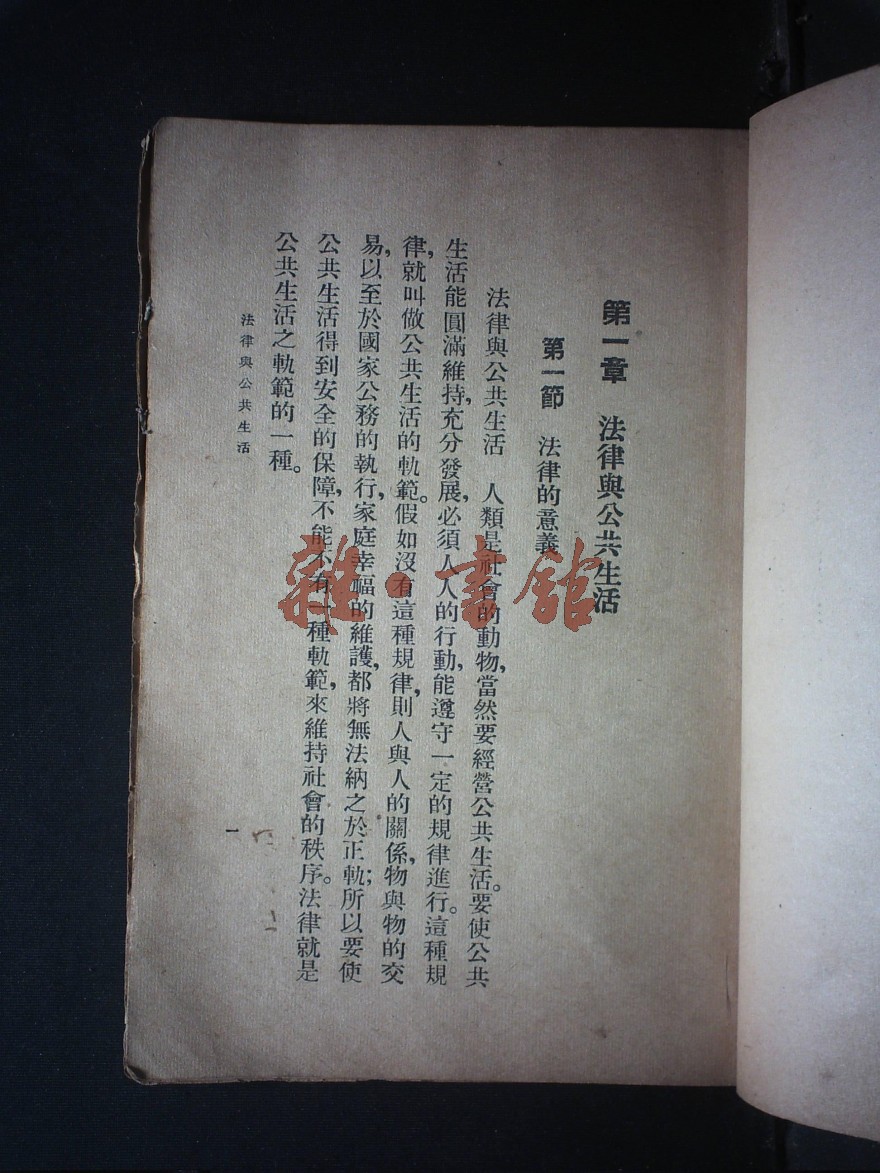 第一章　法律與公共生活
第一節　法律的意義
法律與公共生活　人類是社會的動物，當然要經營公共生活。要使公共
生活能圓滿維持，充分發展，必須人人的行動，能遵守一定的規律進行。這種規
律，就叫做公共生活的軌範。假如沒有這種規律，則人與人的關係，物與物的交
易，以至於國家公務的執行，家庭幸福的維護，都將無法納之於正軌；所以要使
公共生活得到安全的保障，不能不有一種軌範，來維持社會的秩序。法律就是
公共生活之軌範的一種。
法律與公共生活
一
雜·書館